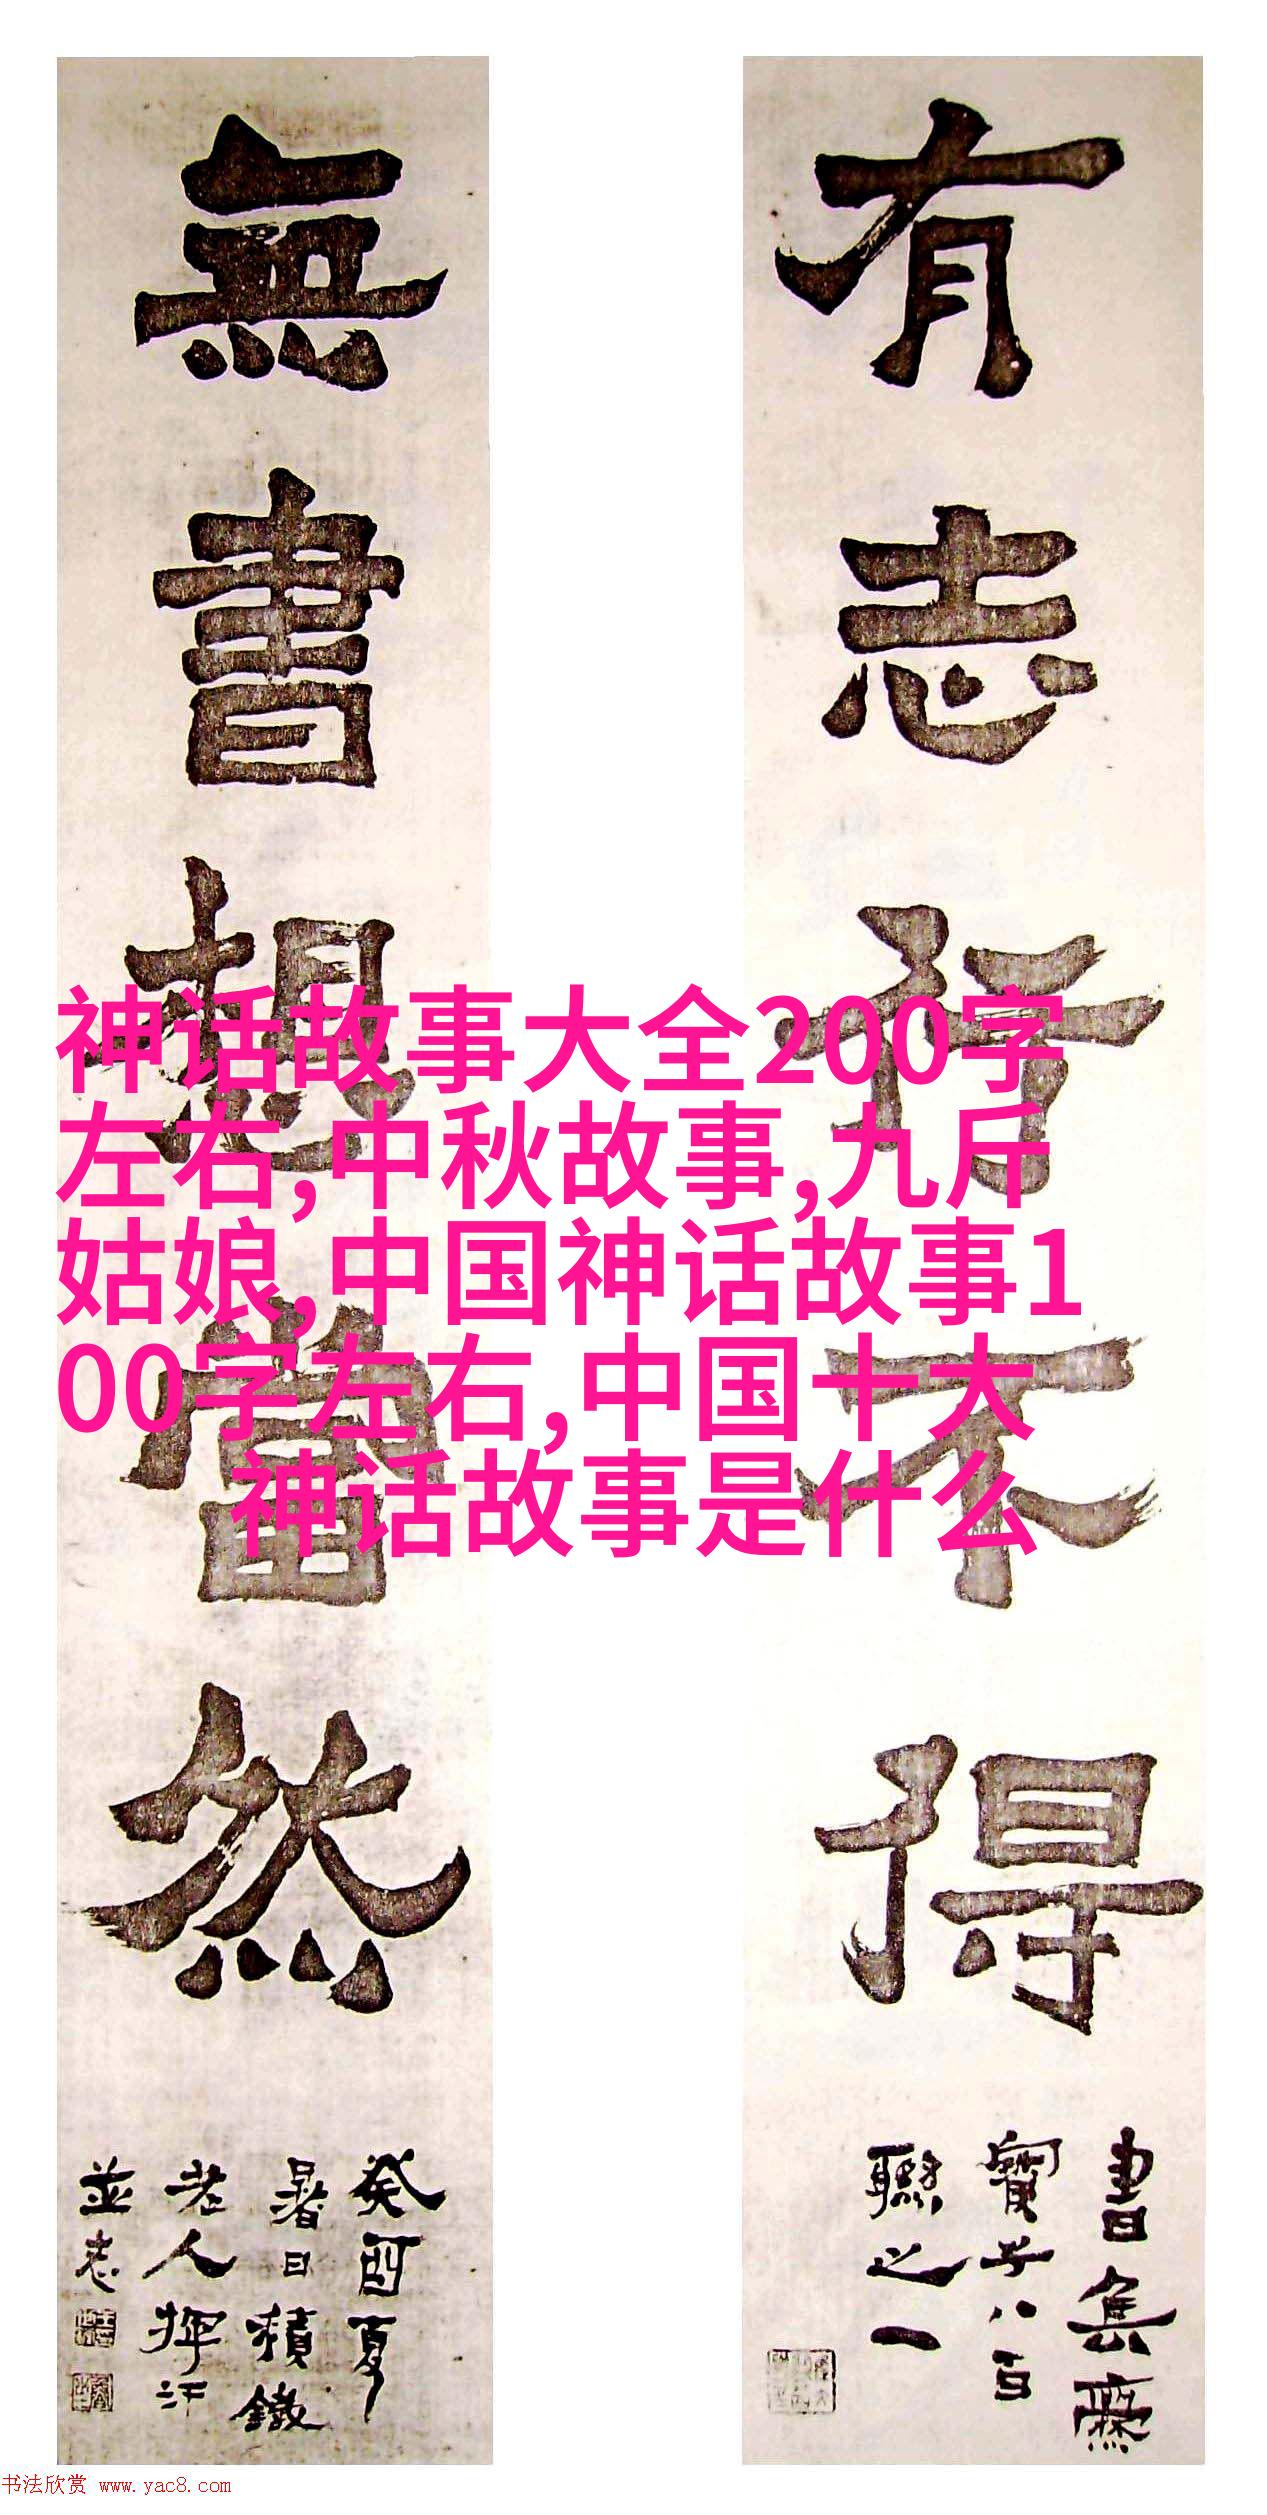 有志行不得
書集齋
寶子八百
聯之一
無書想當然
癸酉夏
暑日積鐵
老人揮汗
並志
神话故事大全200字
左右,中秋故事,九斤
姑娘,中国神话故事1
00字左右,中国十大
神话故事是什么
书法欣赏 www.yac8.com